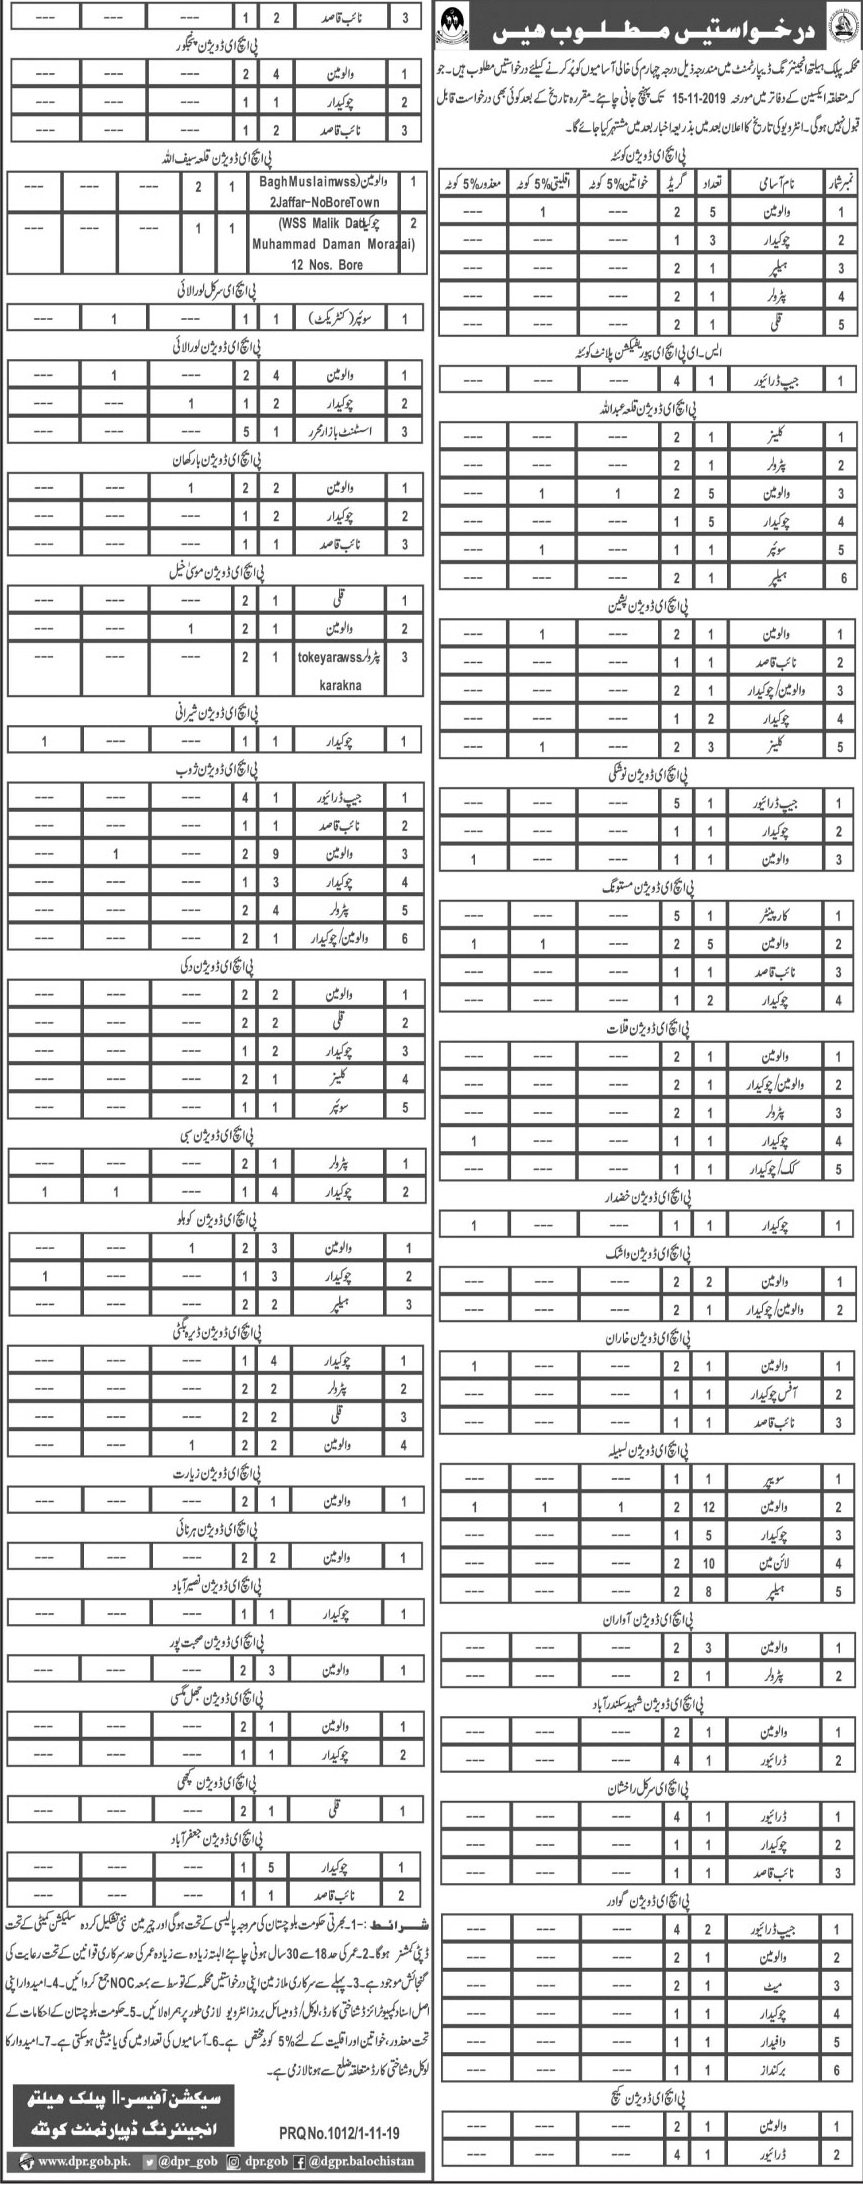 درخواستیں مطلوب ہیں
محکمہ پبلک ہیلتھ انجینئرنگ ڈیپارٹمنٹ میں مندرجہ ذیل درجہ چہارم کی خالی آسامیوں کو پُر کرنے کیلئے درخواستیں مطلوب ہیں۔ جو
کہ متعلقہ ایکسین کے دفاتر میں مورخہ 2019-11-15 تک پہنچ جانی چاہئے۔ مقررہ تاریخ کے بعد کوئی بھی درخواست قابل
قبول نہیں ہوگی۔ انٹرویو کی تاریخ کا اعلان بعد میں بذریعہ اخبار بعد میں مشتہر کیا جائے گا۔
پی ایچ ای ڈویژن کوئٹہ
نمبر شمار نام آسامی تعداد گریڈ خواتین 5% کوٹہ اقلیتی 5% کوٹہ معذور 5% کوٹہ
1 والومین 5 2 --- 1 ---
2 چوکیدار 3 1 --- --- ---
3 ہیلپر 1 2 --- --- ---
4 پٹرولر 1 2 --- --- ---
5 قلی 1 2 --- --- ---
ایس۔ای پی ایچ ای پیوریفیکشن پلانٹ کوئٹہ
1 جیپ ڈرائیور 1 4 --- --- ---
پی ایچ ای ڈویژن قلعہ عبداللہ
1 کلینر 1 2 --- --- ---
2 پٹرولر 1 2 --- --- ---
3 والومین 5 2 1 1 ---
4 چوکیدار 5 1 --- --- ---
5 سوئپر 1 1 --- 1 ---
6 ہیلپر 1 2 --- --- ---
پی ایچ ای ڈویژن پشین
1 والومین 1 2 --- 1 ---
2 نائب قاصد 1 1 --- --- ---
3 والومین/چوکیدار 1 2 --- --- ---
4 چوکیدار 2 1 --- --- ---
5 کلینر 3 2 --- 1 ---
پی ایچ ای ڈویژن نوشکی
1 جیپ ڈرائیور 1 5 --- --- ---
2 چوکیدار 1 1 --- --- ---
3 والومین 1 1 --- --- 1
پی ایچ ای ڈویژن مستونگ
1 کارپینٹر 1 5 --- --- ---
2 والومین 5 2 --- 1 1
3 نائب قاصد 1 1 --- --- ---
4 چوکیدار 2 1 --- --- ---
پی ایچ ای ڈویژن قلات
1 والومین 1 2 --- --- ---
2 والومین/چوکیدار 1 2 --- --- ---
3 پٹرولر 1 2 --- --- ---
4 چوکیدار 1 1 --- --- 1
5 کک/چوکیدار 1 1 --- --- ---
پی ایچ ای ڈویژن خضدار
1 چوکیدار 1 1 --- --- 1
پی ایچ ای ڈویژن واشک
1 والومین 2 2 --- --- ---
2 والومین/چوکیدار 1 2 --- --- ---
پی ایچ ای ڈویژن خاران
1 والومین 1 2 --- --- 1
2 آفس چوکیدار 1 1 --- --- ---
3 نائب قاصد 1 1 --- --- ---
پی ایچ ای ڈویژن لسبیلہ
1 سویپر 1 1 --- --- ---
2 والومین 12 2 1 1 1
3 چوکیدار 5 1 --- --- ---
4 لائن مین 10 2 --- --- ---
5 ہیلپر 8 2 --- --- ---
پی ایچ ای ڈویژن آواران
1 والومین 3 2 --- --- ---
2 پٹرولر 1 2 --- --- ---
پی ایچ ای ڈویژن شہید سکندر آباد
1 والومین 1 2 --- --- ---
2 ڈرائیور 1 4 --- --- ---
پی ایچ ای سرکل راخشان
1 ڈرائیور 1 4 --- --- ---
2 چوکیدار 1 1 --- --- ---
3 نائب قاصد 1 1 --- --- ---
پی ایچ ای ڈویژن گوادر
1 جیپ ڈرائیور 2 4 --- --- ---
2 والومین 1 2 --- --- ---
3 میٹ 1 2 --- --- ---
4 چوکیدار 1 1 --- --- ---
5 دافیدار 1 1 --- --- ---
6 برکنداز 1 1 --- --- ---
پی ایچ ای ڈویژن کیچ
1 والومین 1 2 --- --- ---
2 ڈرائیور 1 4 --- --- ---
3 نائب قاصد 2 1 --- --- ---
پی ایچ ای ڈویژن پنجگور
1 والومین 4 2 --- --- ---
2 چوکیدار 2 1 --- --- ---
3 نائب قاصد 2 1 --- --- ---
پی ایچ ای ڈویژن قلعہ سیف اللہ
1 والومین (BaghMuslaimwss 1 2 --- --- ---
2Jaffar-NoBoreTown
2 چوکیدار (WSS Malik Dad 1 1 --- --- ---
Muhammad Daman Morazai)
12 Nos. Bore
پی ایچ ای سرکل لورالائی
1 سوئپر (کنٹریکٹ) 1 1 --- 1 ---
پی ایچ ای ڈویژن لورالائی
1 والومین 4 2 --- 1 ---
2 چوکیدار 2 1 1 --- ---
3 اسسٹنٹ بازار محرر 1 5 --- --- ---
پی ایچ ای ڈویژن بارکھان
1 والومین 2 2 1 --- ---
2 چوکیدار 2 1 --- --- ---
3 نائب قاصد 1 1 --- --- ---
پی ایچ ای ڈویژن موسیٰ خیل
1 قلی 1 2 --- --- ---
2 والومین 1 2 1 --- ---
3 پٹرولر tokeyarawss 1 2 --- --- ---
karakna
پی ایچ ای ڈویژن شیرانی
1 چوکیدار 1 1 --- --- 1
پی ایچ ای ڈویژن ژوب
1 جیپ ڈرائیور 1 4 --- --- ---
2 نائب قاصد 1 1 --- --- ---
3 والومین 9 2 --- 1 ---
4 چوکیدار 3 1 --- --- ---
5 پٹرولر 4 2 --- --- ---
6 والومین/چوکیدار 1 2 --- --- ---
پی ایچ ای ڈویژن دکی
1 والومین 2 2 --- --- ---
2 قلی 2 2 --- --- ---
3 چوکیدار 2 1 --- --- ---
4 کلینر 1 2 --- --- ---
5 سوئپر 1 1 --- --- ---
پی ایچ ای ڈویژن سبی
1 پٹرولر 1 2 --- --- ---
2 چوکیدار 4 1 --- 1 1
پی ایچ ای ڈویژن کوہلو
1 والومین 3 2 1 --- ---
2 چوکیدار 3 1 --- --- 1
3 ہیلپر 2 2 --- --- ---
پی ایچ ای ڈویژن ڈیرہ بگٹی
1 چوکیدار 4 1 --- --- ---
2 پٹرولر 2 2 --- --- ---
3 قلی 2 2 --- --- ---
4 والومین 2 2 1 --- ---
پی ایچ ای ڈویژن زیارت
1 والومین 1 2 --- --- ---
پی ایچ ای ڈویژن ہرنائی
1 والومین 2 2 --- --- ---
پی ایچ ای ڈویژن نصیر آباد
1 چوکیدار 1 1 --- --- ---
پی ایچ ای ڈویژن صحبت پور
1 والومین 3 2 --- --- ---
پی ایچ ای ڈویژن جھل مگسی
1 والومین 1 2 --- --- ---
2 چوکیدار 1 1 --- --- ---
پی ایچ ای ڈویژن کچھی
1 قلی 1 2 --- --- ---
پی ایچ ای ڈویژن جعفر آباد
1 چوکیدار 5 1 --- --- ---
2 نائب قاصد 1 1 --- --- ---
شرائط :-1۔ بھرتی حکومت بلوچستان کی مروجہ پالیسی کے تحت ہوگی اور چیئرمین نئی تشکیل کردہ سلیکشن کمیٹی کے تحت
ڈپٹی کمشنر ہوگا۔ 2۔ عمر کی حد 18 سے 30 سال ہونی چاہئے البتہ زیادہ سے زیادہ عمر کی حد سرکاری قوانین کے تحت رعایت کی
گنجائش موجود ہے۔ 3۔ پہلے سے سرکاری ملازمین اپنی درخواستیں محکمہ کے توسط سے بمعہ NOC جمع کروائیں۔ 4۔ امیدوار اپنی
اصل اسناد کمپیوٹرائزڈ شناختی کارڈ، لوکل/ڈومیسائل بروز انٹرویو لازمی طور پر ہمراہ لائیں۔ 5۔ حکومت بلوچستان کے احکامات کے
تحت معذور، خواتین اور اقلیت کے لئے 5% کوٹہ مختص ہے۔ 6۔ آسامیوں کی تعداد میں کمی یا بیشی ہوسکتی ہے۔ 7۔ امیدوار کا
لوکل و شناختی کارڈ متعلقہ ضلع سے ہونا لازمی ہے۔
سیکشن آفیسر-II پبلک ہیلتھ
انجینئرنگ ڈیپارٹمنٹ کوئٹہ
PRQ No.1012/1-11-19
www.dpr.gob.pk. @dpr_gob dpr.gob @dgpr.balochistan